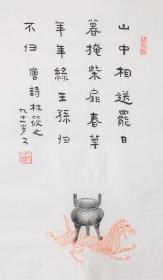 山中相送罷日
暮掩柴扉春草
年年綠王孫归
不归 唐詩 林筱之
九十一岁书